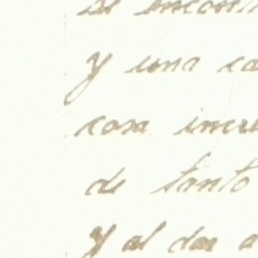 se encont
y una ca
cosa incre
de tanto
y al dar a